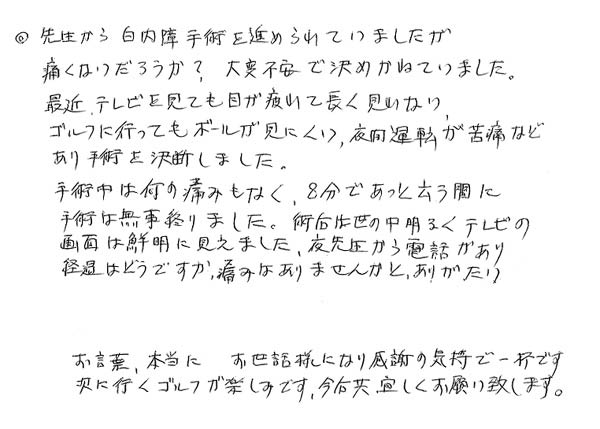 ◎ 先生から 白内障手術を進められていましたが
痛くないだろうか？ 大変不安で決めかねていました。
最近、テレビを見ても目が疲れて長く見れない、
ゴルフに行ってもボールが見にくい、夜間運転が苦痛など
あり手術を決断しました。
手術中は何の痛みもなく、8分であっと云う間に
手術は無事終りました。術后は世の中明るくテレビの
画面は鮮明に見えました、夜先生から電話があり
経過はどうですか、痛みはありませんかと、ありがたい
お言葉、本当に お世話様になり感謝の気持で一杯です
次に行くゴルフが楽しみです、今后共、宜しくお願い致します。